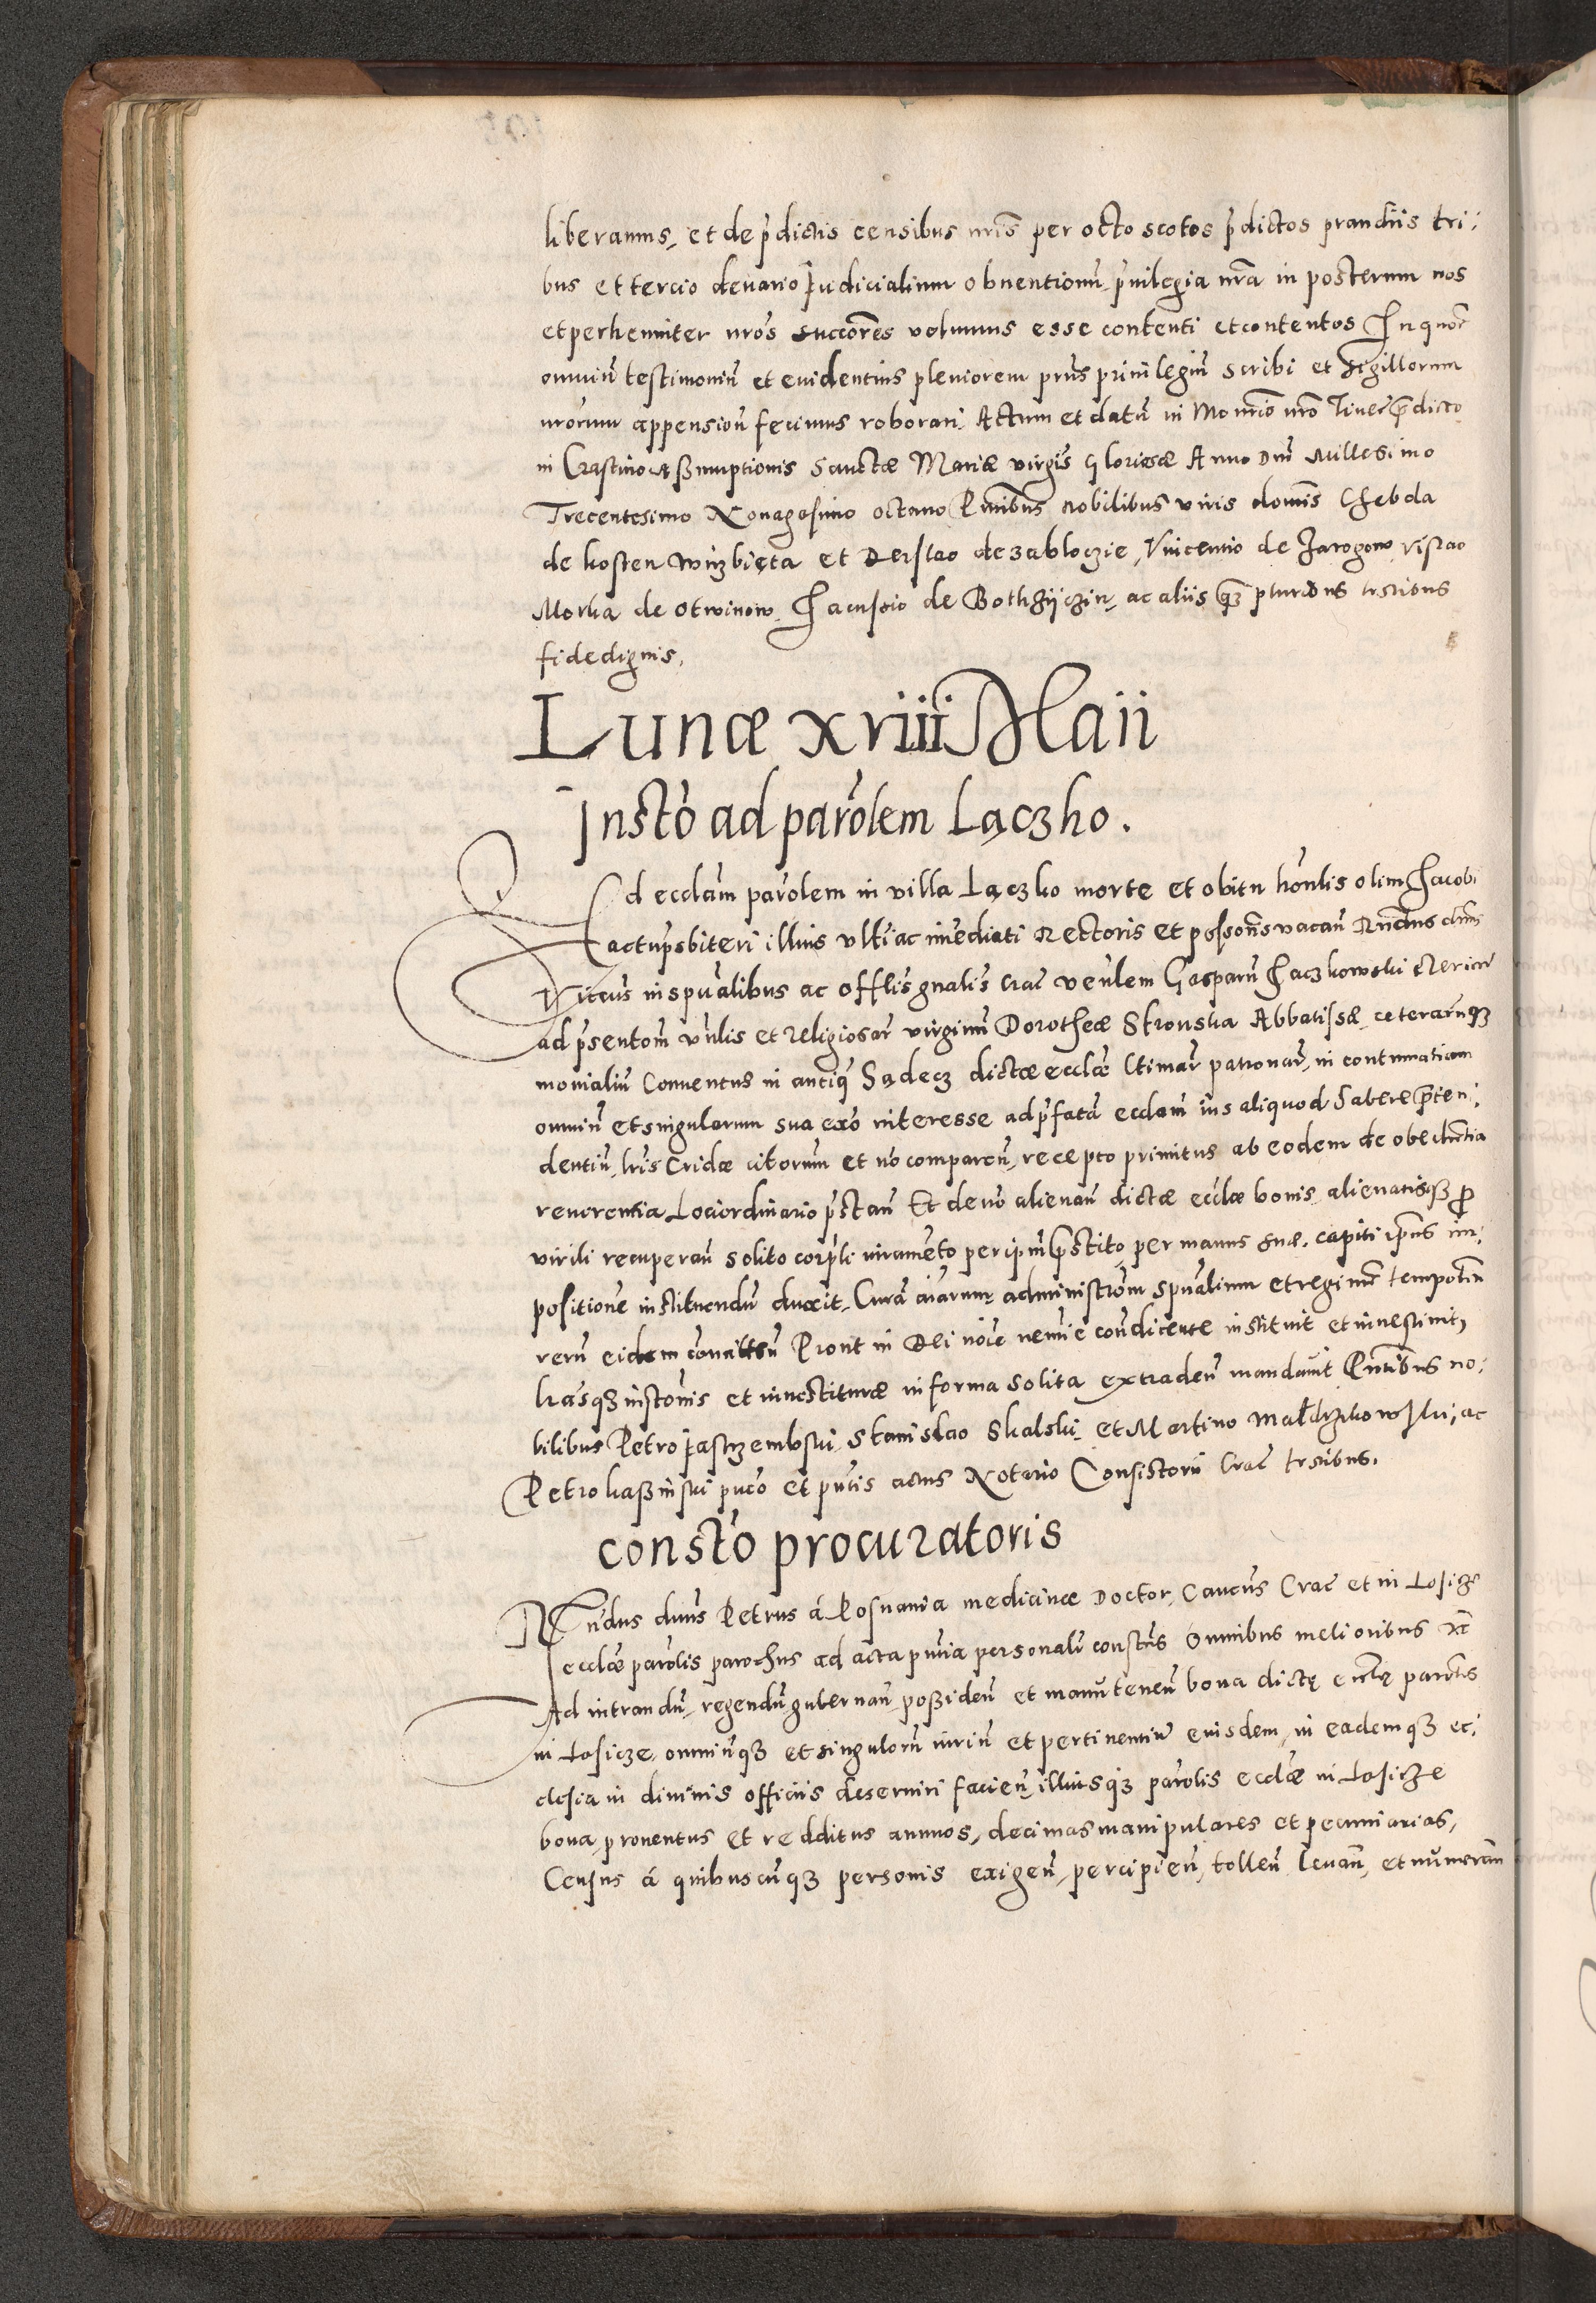 liberamus, et de p̄dictis censibus nr̄is per octo scotos p̄dictos prandiis tri:
bus et tercio denario Judicialium obuentionū p̄uilegia nr̄a in posterum nos
et perhenniter nr̄os succores volumus esse contenti et contentos In quor̄
omniū testimoniū et euidentius pleniorem pr̄ns priuilegiū scribi et sigillorum
nrōrum appensiōn fecimus roborari. Actum et datū in Monrio nrō p̄dicto
in Crastino Assumptionis Sanctæ Mariæ virgis̄ Gloriosæ Anno Dnī Millesimo
Trecentesimo Nonagesimo octauo Pnt̄ibus nobilibus viris domis̄ Chebda
de kosten Wirzbięta et Derslao de zabloczie, Vincentio de Jarogow, Vislao
Morka de Otwinow, Jacussio de Bothzijczin, ac aliis qz pluribus testibus
fidedignis,
Lunæ xviii Maii
Instō ad parōlem Lączko.
Ad eccl̄am parōlem in villa Lączko morte et obitu honlis olim Jacobi
actu p̄sbiteri illius vlt̄i ac im̄ediati Rectoris et possoris vacan̄ Rn̄dus dn̄s
Vicarius in spūalibus ac offlis gnālis Crac̄ venlem Gasparū Jaczkowski clericū
ad p̄sentōm vnlis et Religiosar̄ virginū Dorotheæ Stronska Abbatissæ ceterarūqz
monialiū Conuentus in antiq̄ Sądecz dictæ eccl̄æ ltimar̄ patronar̄, in contumatiam
omniū et singulorum sua exō interesse ad p̄fatā eccl̄am ius aliquod habere p̄ten:
dentiū lr̄is Cridæ citorum et nō comparen̄, recepto primitus ab eodem de obedientia
reuerentia Loci ordinario p̄stan̄ Et de nō alienan̄ dictæ eccl̄æ bonis alienatisqz p̄
virili recuperan̄ solito corp̄li iuramēto per ipm̄ p̄stito, per manus suæ capiti ipsius im:
positionē instituendū duxit, Curā aīarum administrōm spūalium et regimē tempoliū
rerū eidem com̄itten̄ Prout in Dei noīe nemine condicente instituit et inuestiuit,
lrāsqz instōnis et inuestituræ in forma solita extraden̄ mandauit Pnt̄ibus no:
bilibus Petro Jastrzembski, Stanislao Skalski et Martino ac
Petro kassinski puco et pn̄tis actus Notario Consistorii Crac̄ testibus.
constō procuratoris
Rn̄dus dnūs Petrus á Posnania medicinæ Doctor, Cancūs Crac̄ et in Losicze
eccl̄æ parōlis parochus ad acta pn̄tia personalr̄ constūs Omnibus melioribus
Ad intrandū, regendū, gubernan̄, possiden̄ et manutenen̄ bona dictę eccl̄ę parōlis
in Losicze, omniūqz et singulorū iuriū et pertinentiar̄ eiusdem, in eademqz ec:
clesia in diuinis officiis deseruiri facien̄, illiusqz parōlis eccl̄æ in Losicze
bona, prouentus et redditus annuos, decimas manipulares et pecuniarias,
Census á quibuscūqz personis exigen̄, percipien̄, tollen̄ leuan̄, et numeran̄